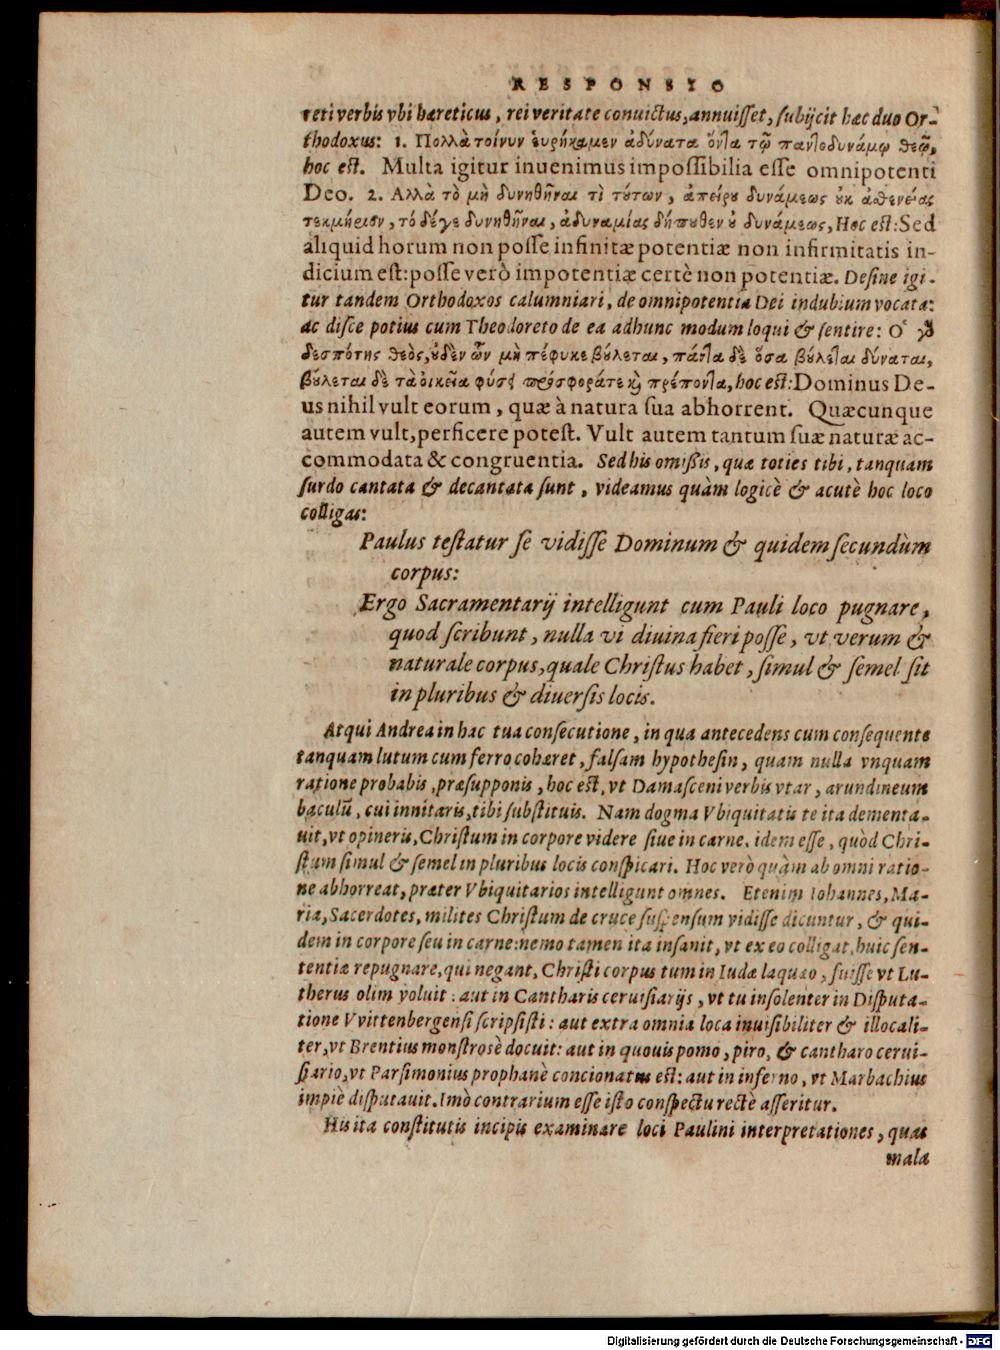 RESPONSIO
reti verbis vbi hæreticus, rei veritate conuictus, annuisset, subijcit hæc duo Or-
thodoxus: 1. Πολλὰ τοίνυν ἑυρήκαμεν ἀδύνατα ὄντα τῷ παντοδυνάμῳ θεῷ,
hoc est. Multa igitur inuenimus impossibilia esse omnipotenti
Deo. 2. Αλλὰ τὸ μὴ δυνηθῆναι τὶ τούτων, ἀπείρου δυνάμεως οὐκ ἀσθενείας
τεκμήριον, τό δέγε δυνηθῆναι, ἀδυναμίας δήπουθεν οὐ δυνάμεως, Hoc est: Sed
aliquid horum non posse infinitæ potentiæ non infirmitatis in-
dicium est: posse verò impotentiæ certè non potentiæ. Desine igi-
tur tandem Orthodoxos calumniari, de omnipotentia Dei indubium vocata:
ac disce potius cum Theodoreto de ea adhunc modum loqui & sentire: Ὁ γὰρ
δεσπότης θεὸς, οὐδὲν ὧν μὴ πέφυκε βούλεται, πάντα δὲ ὅσα βούλεται δύναται,
βούλεται δὲ τὰ οικεῖα φύσει πρόσφορά τε καὶ πρέποντα, hoc est: Dominus De-
us nihil vult eorum, quæ à natura sua abhorrent. Quæcunque
autem vult, perficere potest. Vult autem tantum suæ naturæ ac-
commodata & congruentia. Sed his omißis, quæ toties tibi, tanquam
surdo cantata & decantata sunt, videamus quàm logicè & acutè hoc loco
colligas:
Paulus testatur se vidisse Dominum & quidem secundùm
corpus:
Ergo Sacramentarij intelligunt cum Pauli loco pugnare,
quod scribunt, nulla vi diuina fieri posse, vt verum &
naturale corpus, quale Christus habet, simul & semel sit
in pluribus & diuersis locis.
Atqui Andrea in hac tua consecutione, in qua antecedens cum consequente
tanquam lutum cum ferro cohæret, falsam hypothesin, quam nulla vnquam
ratione probabis, præsupponis, hoc est, vt Damasceni verbis vtar, arundineum
baculū, cui innitaris, tibi substituis. Nam dogma Vbiquitatis te ita dementa-
uit, vt opineris, Christum in corpore videre siue in carne, idem esse, quòd Chri-
stum simul & semel in pluribus locis conspicari. Hoc verò quàm ab omni ratio-
ne abhorreat, præter Vbiquitarios intelligunt omnes. Etenim Iohannes, Ma-
ria, Sacerdotes, milites Christum de cruce suspensum vidisse dicuntur, & qui-
dem in corpore seu in carne: nemo tamen ita insanit, vt ex eo colligat, huic sen-
tentiæ repugnare, qui negant, Christi corpus tum in Iudæ laqueo, fuisse vt Lu-
therus olim voluit: aut in Cantharis ceruisiarijs, vt tu insolenter in Disputa-
tione Vvittenbergensi scripsisti: aut extra omnia loca inuisibiliter & illocali-
ter, vt Brentius monstrosè docuit: aut in quouis pomo, piro, & cantharo cerui-
siario, vt Parsimonius prophanè concionatus est: aut in inferno, vt Marbachius
impiè disputauit. Imò contrarium esse isto conspectu rectè asseritur.
His ita constitutis incipis examinare loci Paulini interpretationes, quas
malæ
Digitalisierung gefördert durch die Deutsche Forschungsgemeinschaft - DFG